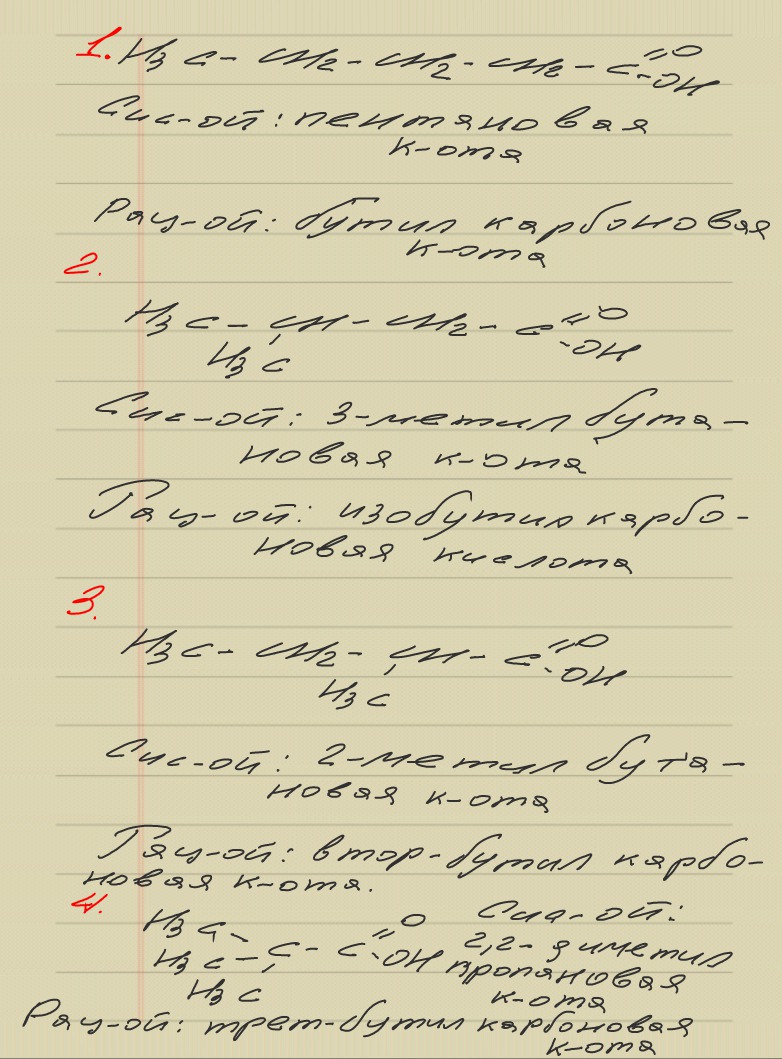 1. H3C-CH2-CH2-CH2-C=O
-OH
Сис-ой: пентановая
к-ота
Рац-ой: бутил карбоновая
к-ота
2.
H3C-CH-CH2-C=O
H3C -OH
Сис-ой: 3-метил бута-
новая к-ота
Рац-ой: изобутил карбо-
новая кислота
3.
H3C-CH2-CH-C=O
H3C -OH
Сис-ой: 2-метил бута-
новая к-ота
Рац-ой: втор-бутил карбо-
новая к-ота.
4.
H3C- =O Сис-ой:
H3C-C-C-OH 2,2-диметил
пропановая
H3C к-ота
Рац-ой: трет-бутил карбоновая
к-ота